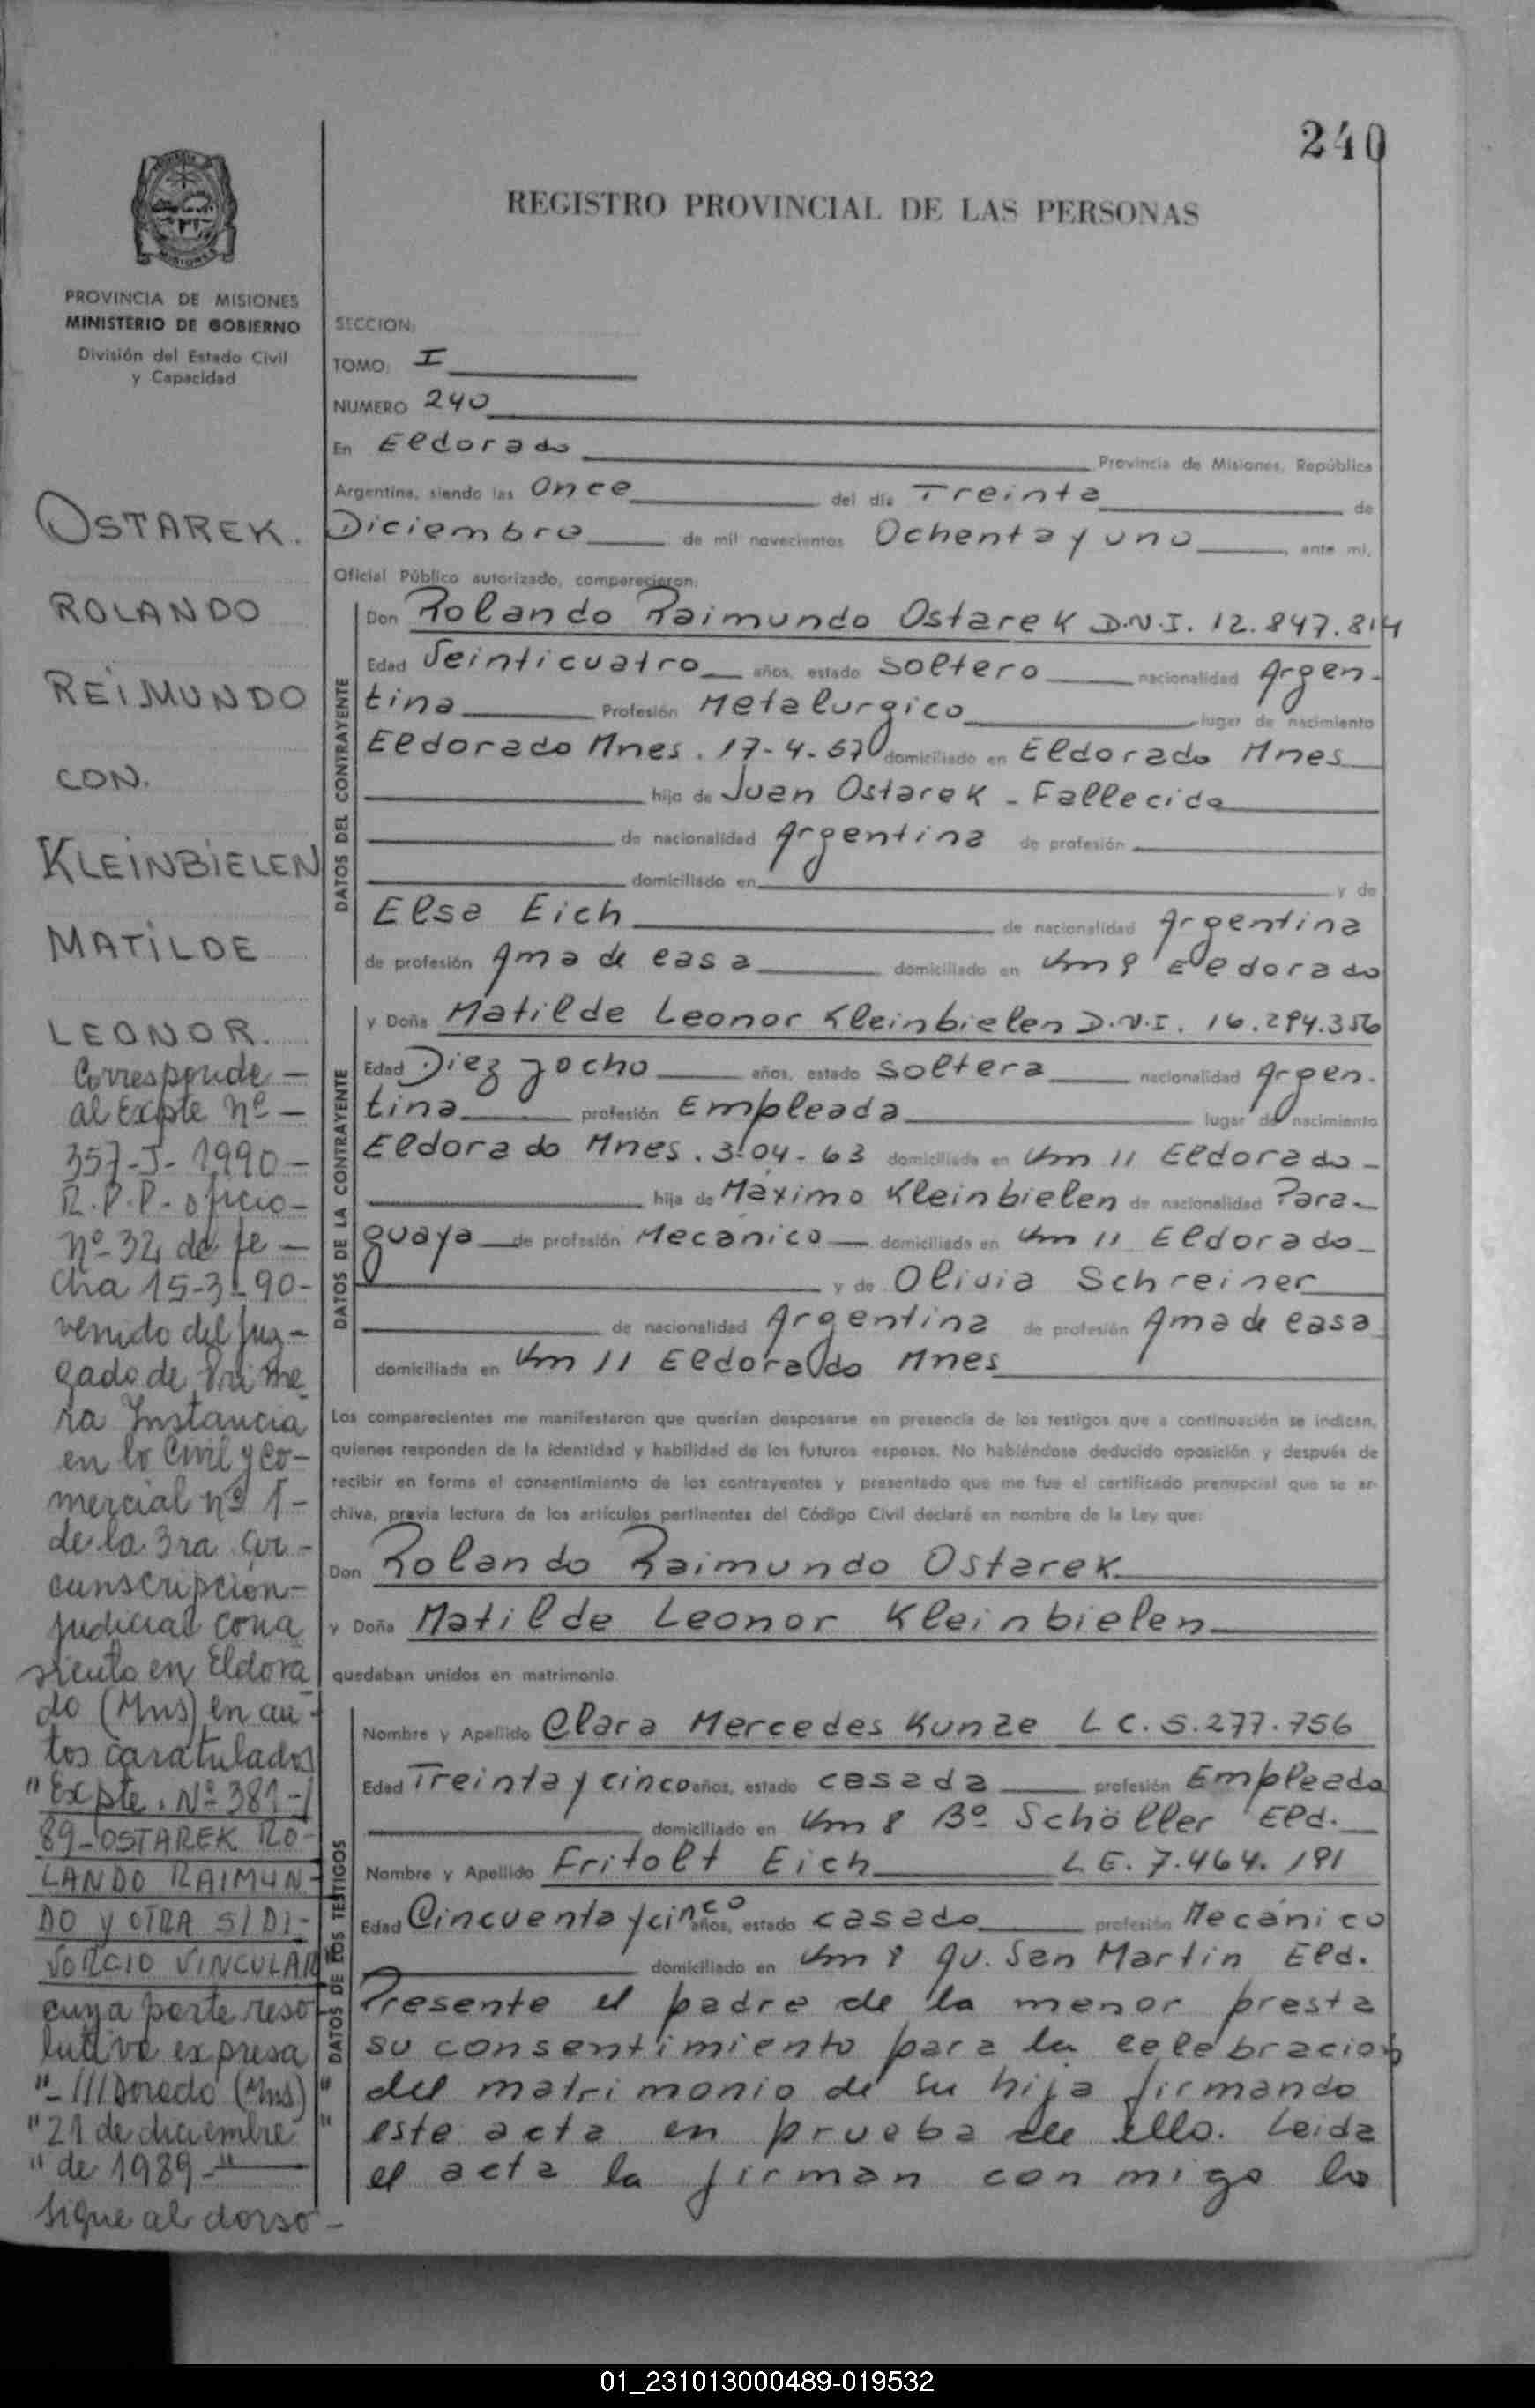 240
REGISTRO PROVINCIAL DE LAS PERSONAS
MISIONES
PROVINCIA DE MISIONES
MINISTERIO DE GOBIERNO
División del Estado Civil
y Capacidad
OSTAREK.
ROLANDO
REIMUNDO
CON.
KLEINBIELEN
MATILDE
LEONOR.
Corresponde -
al Expte nº -
357-J-1990-
R.P.P- oficio-
nº-32, de fe -
cha 15-3-90-
venido del Juz-
gado de Prime
ra Instancia
en lo Civil y Co-
mercial nº 1-
de la 3ra Cir-
cunscripción-
judicial con a
siento en Eldora
do (Mns) en au-
tos caratulados
"Expte. Nº 381-
89-OSTAREK RO-
LANDO RAIMUN-
DO y OTRA S/DI-
VORCIO VINCULAR
cuya parte reso-
lutiva expresa
"-///Dorado (Mns)"
"21 de diciembre"
"de 1989-"
sigue al dorso-
SECCION:
TOMO: I
NUMERO 240
En Eldorado Provincia de Misiones, República
Argentina, siendo las Once del día Treinta de
Diciembre de mil novecientos Ochenta y uno, ante mi,
Oficial Público autorizado, comparecieron:
DATOS DEL CONTRAYENTE
Don Rolando Raimundo Ostarek D.N.I. 12.847.814
Edad Veinticuatro años, estado soltero nacionalidad Argen-
tina Profesión Metalurgico lugar de nacimiento
Eldorado Mnes. 17-4-57 domiciliado en Eldorado Mnes
hijo de Juan Ostarek - Fallecido
de nacionalidad Argentina de profesión
domiciliado en y de
Elsa Eich de nacionalidad Argentina
de profesión Ama de casa domiciliado en Km 8 Eldorado
DATOS DE LA CONTRAYENTE
y Doña Matilde Leonor Kleinbielen D.N.I. 16.294.356
Edad Diez y ocho años, estado soltera nacionalidad Argen-
tina profesión Empleada lugar de nacimiento
Eldorado Mnes. 3-04-63 domiciliada en Km 11 Eldorado-
hija de Máximo Kleinbielen de nacionalidad Para-
guaya de profesión Mecánico domiciliado en Km 11 Eldorado
y de Olivia Schreiner
de nacionalidad Argentina de profesión Ama de casa
domiciliada en Km 11 Eldorado Mnes
Los comparecientes me manifestaron que querían desposarse en presencia de los testigos que a continuación se indican,
quienes responden de la identidad y habilidad de los futuros esposos. No habiéndose deducido oposición y después de
recibir en forma el consentimiento de los contrayentes y presentado que me fue el certificado prenupcial que se ar-
chiva, previa lectura de los artículos pertinentes del Código Civil declaré en nombre de la Ley que:
Don Rolando Raimundo Ostarek
y Doña Matilde Leonor Kleinbielen
quedaban unidos en matrimonio.
DATOS DE LOS TESTIGOS
Nombre y Apellido Clara Mercedes Kunze L C. 5.277.756
Edad Treinta y cinco años, estado casada profesión Empleada
domiciliado en Km 8 Bº Schöller Eld.
Nombre y Apellido Fritolt Eich L E. 7.464.191
Edad Cincuenta y cinco años, estado casado profesión Mecánico
domiciliado en Km 8 Av. San Martin Eld.
Presente el padre de la menor presta
su consentimiento para la celebracion
del matrimonio de su hija firmando
este acta en prueba de ello. Leida
el acta la firman con migo lo
01_231013000489-019532